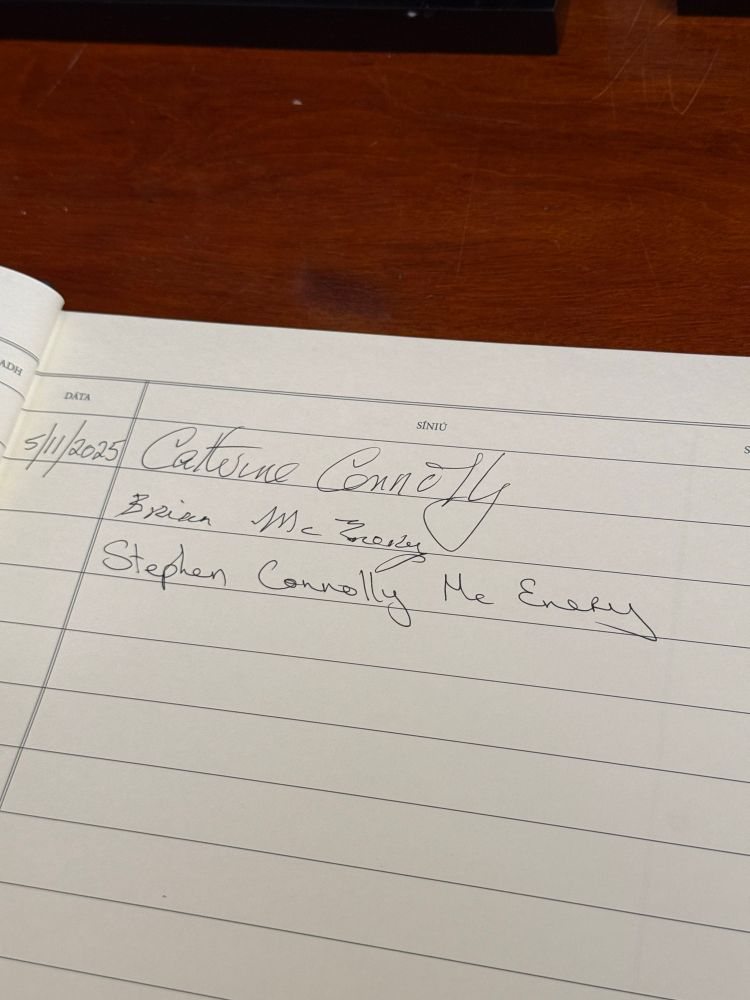 ADH
DÁTA
SÍNIÚ
S
5/11/2025
Catherine Connolly
Brian Mc Enery
Stephen Connolly Mc Enery